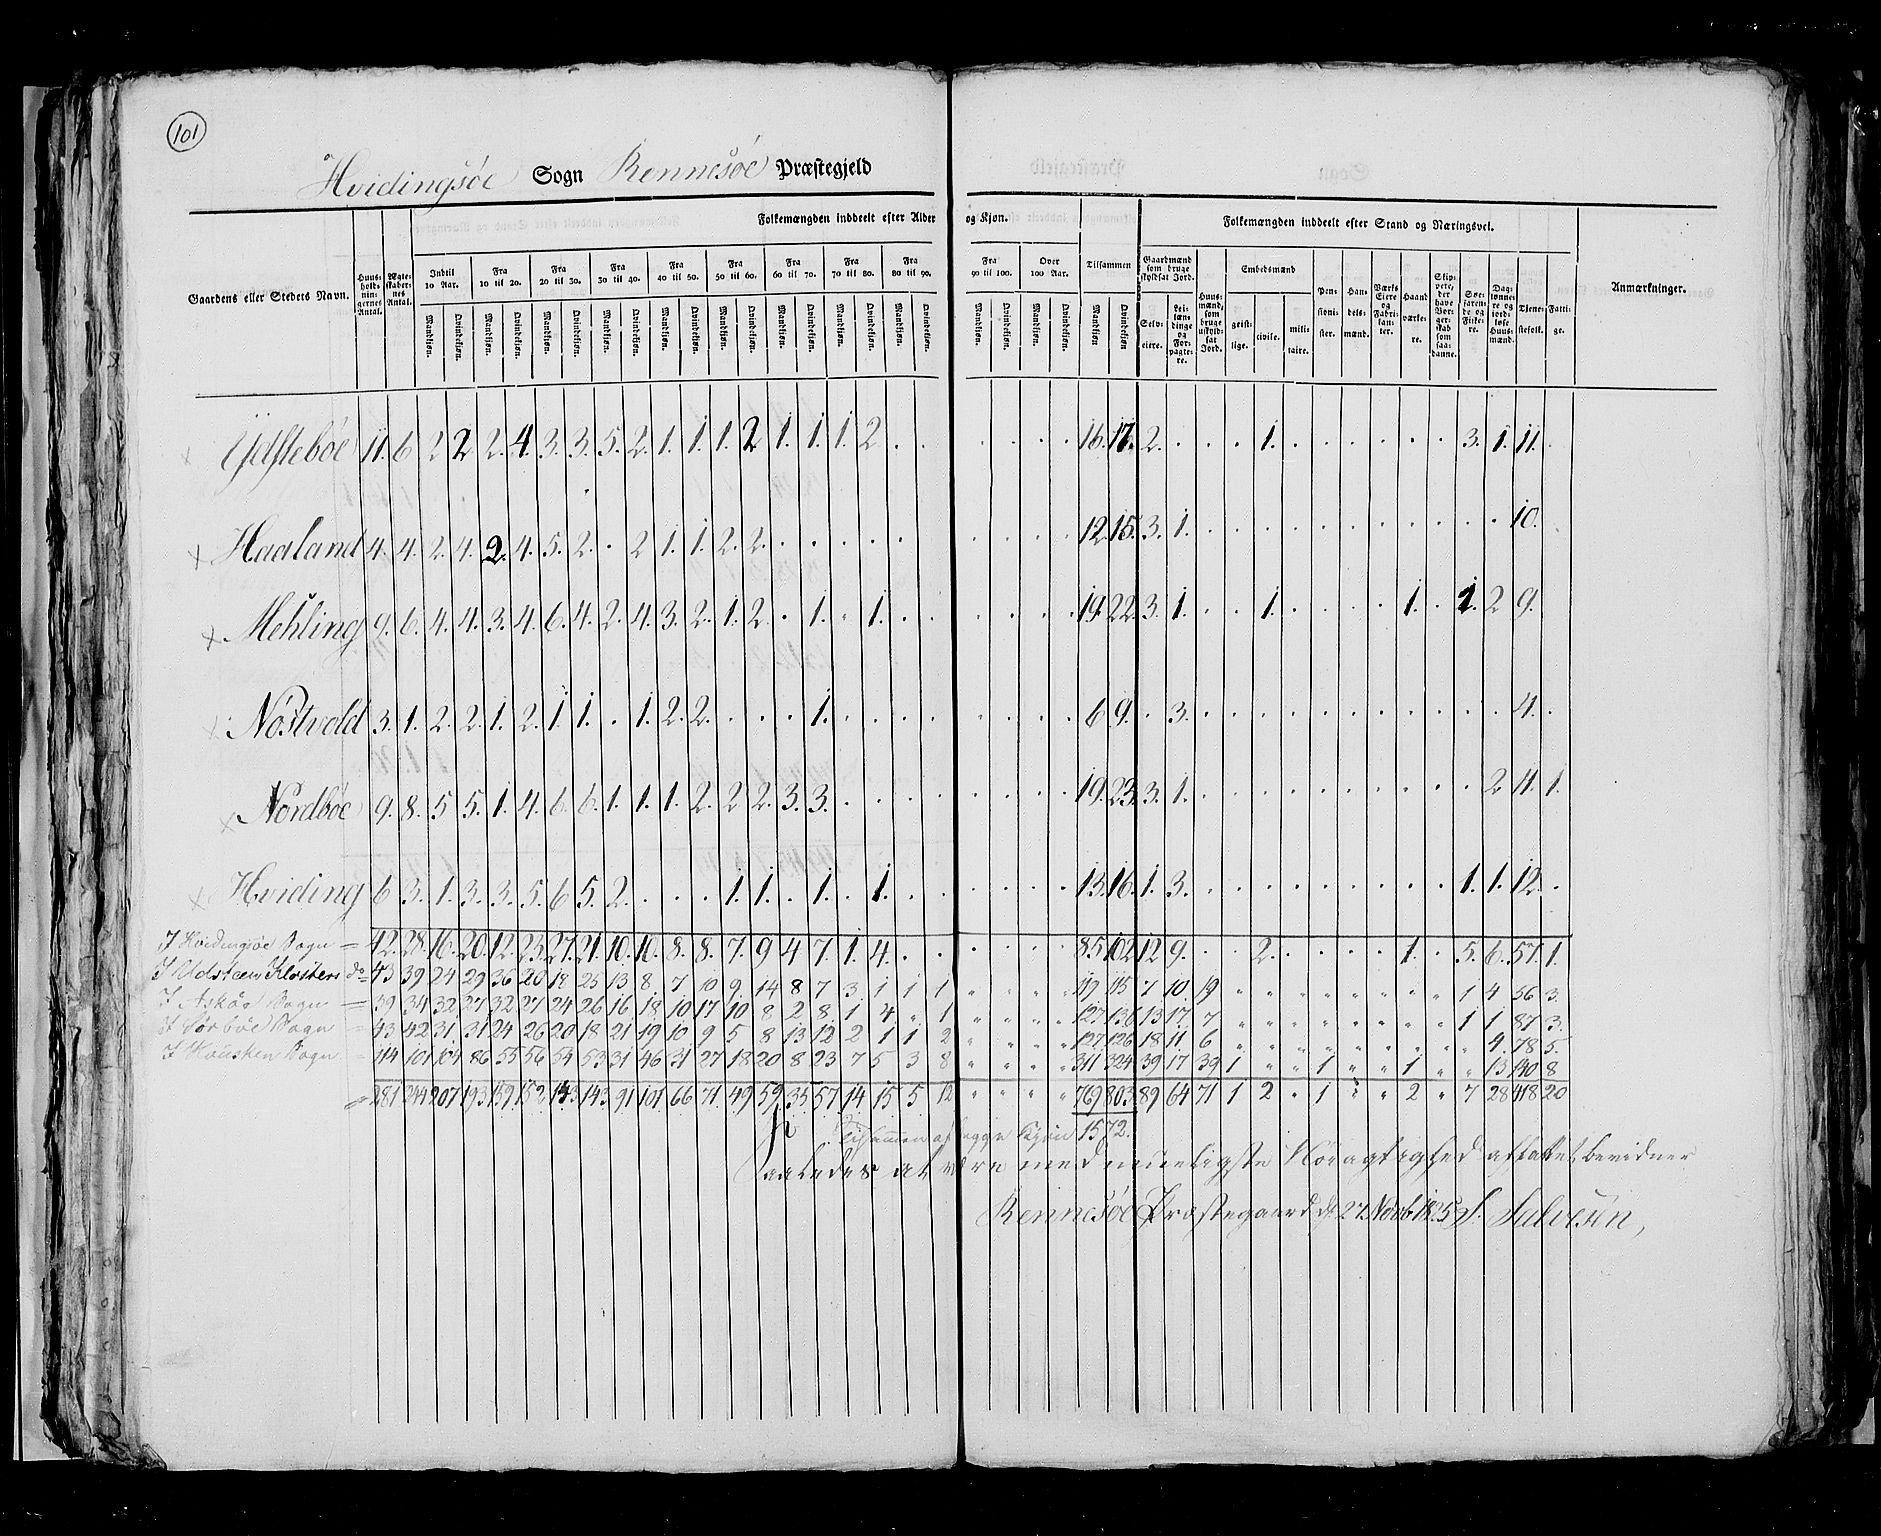 101
Hvidingsöe Sogn Rennesöe Præstegjeld
Folkemængden inddeelt efter Alder og Kjøn. Folkemængden inddeelt efter Stand og Næringsvei.
Gaardens eller Stedets Navn. Huus-holdningernes Antal. Ægteskabernes Antal. Indtil 10 Aar. Fra 10 til 20. Fra 20 til 30. Fra 30 til 40. Fra 40 til 50. Fra 50 til 60. Fra 60 til 70. Fra 70 til 80. Fra 80 til 90. Fra 90 til 100. Over 100 Aar. Tilsammen Gaardmænd som bruge skyldsat Jord. Huusmænd, som bruge uskyldsat Jord. Embedsmænd Pensionister. Handelsmænd. Værks Eiere og Fabrikanter. Haandværkere. Skippere, der have Borgerskab som saadanne. Søefarende og Fiskere. Daglønnere og jordløse Huusmænd. Tjenestefolk. Fattige. Anmærkninger.
Mandkjøn. Qvindekjøn. Mandkjøn. Qvindekjøn. Mandkjøn. Qvindekjøn. Mandkjøn. Qvindekjøn. Mandkjøn. Qvindekjøn. Mandkjøn. Qvindekjøn. Mandkjøn. Qvindekjøn. Mandkjøn. Qvindekjøn. Mandkjøn. Qvindekjøn. Mandkjøn. Qvindekjøn. Mandkjøn. Qvindekjøn. Mandkjøn Qvindekjøn Selveiere. Leilændinge og Forpagtere. geistlige. civile. militaire.
Ydstebøe 11. 6 2 2 2. 4. 3. 3. 5. 2. 1. 1. 1. 2 1. 1. 1. 2 . . . . . . 16. 17. 2. . . . 1. . . . . . . 3. 1. 11. .
Haaland 4. 4. 2. 4. 2. 4. 5. 2. . 2 1. 1. 2. 2. . . . . . . . . . . 12. 15. 3. 1. . . . . . . . . . . . 10. .
Mehling 9. 6. 4. 4. 3. 4. 6. 4. 2. 4. 3. 2. 1. 2. . 1. . 1. . . . . . . 19. 22. 3. 1. . . 1. . . . . 1. . 1. 2 9.
Nöstvold 3. 1. 2. 2. 1. 2. 1 1. . 1. 2. 2. . . . 1. . . . . . . . . 6 9. . 3. . . . . . . . . . . . 4. .
Nordböe 9. 8. 5 5. 1. 4. 6. 6. 1. 1. 1. 2. 2 2. 3. 3. . . . . . . . . 19. 23. 3. 1. . . . . . . . . . . 2 4. 1.
Hviding 6 3. 1. 3. 3. 5. 6 5. 2. . . . 1. 1. . 1. . 1. . . . . . . 13. 16. 1. 3. . . . . . . . . . 1. 1. 12. .
I Hvidingsöe Sogn = 42. 28. 16. 20. 12. 23. 27. 21. 10. 10. 8. 8. 7. 9 4 7. 1. 4. . . . . . . 85 102 12 9. . . 2. . . . . 1. . 5. 6. 57. 1.
I Udsteen Klosters do = 43 39 24 29 36 20 18 25 13 8. 7 10 9 14 8 7 3. 1 1 1 " " " " 119 115 7 10 19 " " " " " " " " 1 4 56 3.
I Askøe Sogn = 39 34 32 27 32 27 24 26 16 18 10 17 10 8 2 8. 1 4 " 1 " " " " 127 136 13 17. 7 " " " " " " " " 1 1 87 3.
I Sørbøe Sogn = 43 42 31 31 24 26 20 18 21 19 10 9 5 8 13 12 2 1 1 2 " " " " 127 126 18 11. 6 " " " " " " " " " 4. 78 5.
I Hausken Sogn = 114 101 104 86 55 56 54 53 31 46 31 27 18 20 8 23 7 5 3 8 " " " " 311 324 39 17 39 1 " " 1 " " 1 " " 13 140 8
= 281 244 207 193 159 152 143 143 91 101 66 71. 49 59. 35 57 14 15 5. 12 " " " " 769 803. 89 64 71 1 2 " 1 " " 2 " 7 28 418 20
Tilsammen af begge Kjøn 1572.
Saaledes at være med mueligste Nöiagtighed affattet bevidner
Rennesöe Præstegaard d. 27 Novb 1825 S. Salvesen,